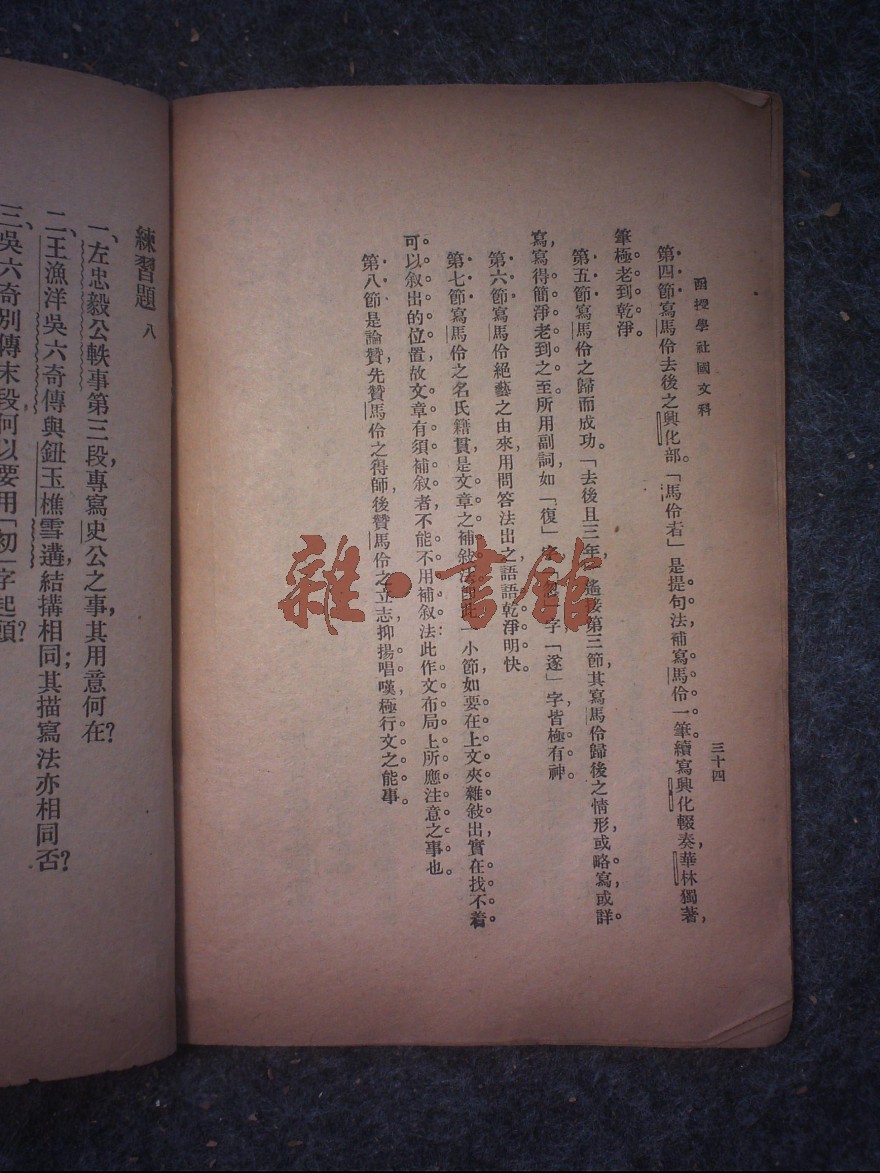 函授學社國文科
三十四
第四節寫馬伶去後之興化部。「馬伶者」是提句法補寫馬伶一筆續寫興化輟奏，華林獨著，
筆極老到乾淨。
第五節寫馬伶之歸而成功。「去後且三年，遙接第三節，其寫馬伶歸後之情形，或略寫或詳
寫，寫得簡淨老到之至所用副詞如「復」字字「遂」字皆極有神。
第六節寫馬伶絕藝之由來，用問答法出之，語語乾淨明快。
第七節寫馬伶之名氏籍貫，是文章之補敍法一小節如要在上文夾雜敍出實在找不着
可以叙出的位置，故文章有須補叙者不能不用補叙法此作文布局上所應注意之事也。
第八節是論贊，先贊馬伶之得師，後贊馬伶之立志，抑揚唱嘆，極行文之能事。
練習題 八
一、左忠毅公軼事第三段，專寫史公之事，其用意何在？
二、王漁洋吳六奇傳與鈕玉樵雪遘，結搆相同；其描寫法亦相同否？
三、吳六奇別傳末段何以要用「初」字起頭？
雜·書館